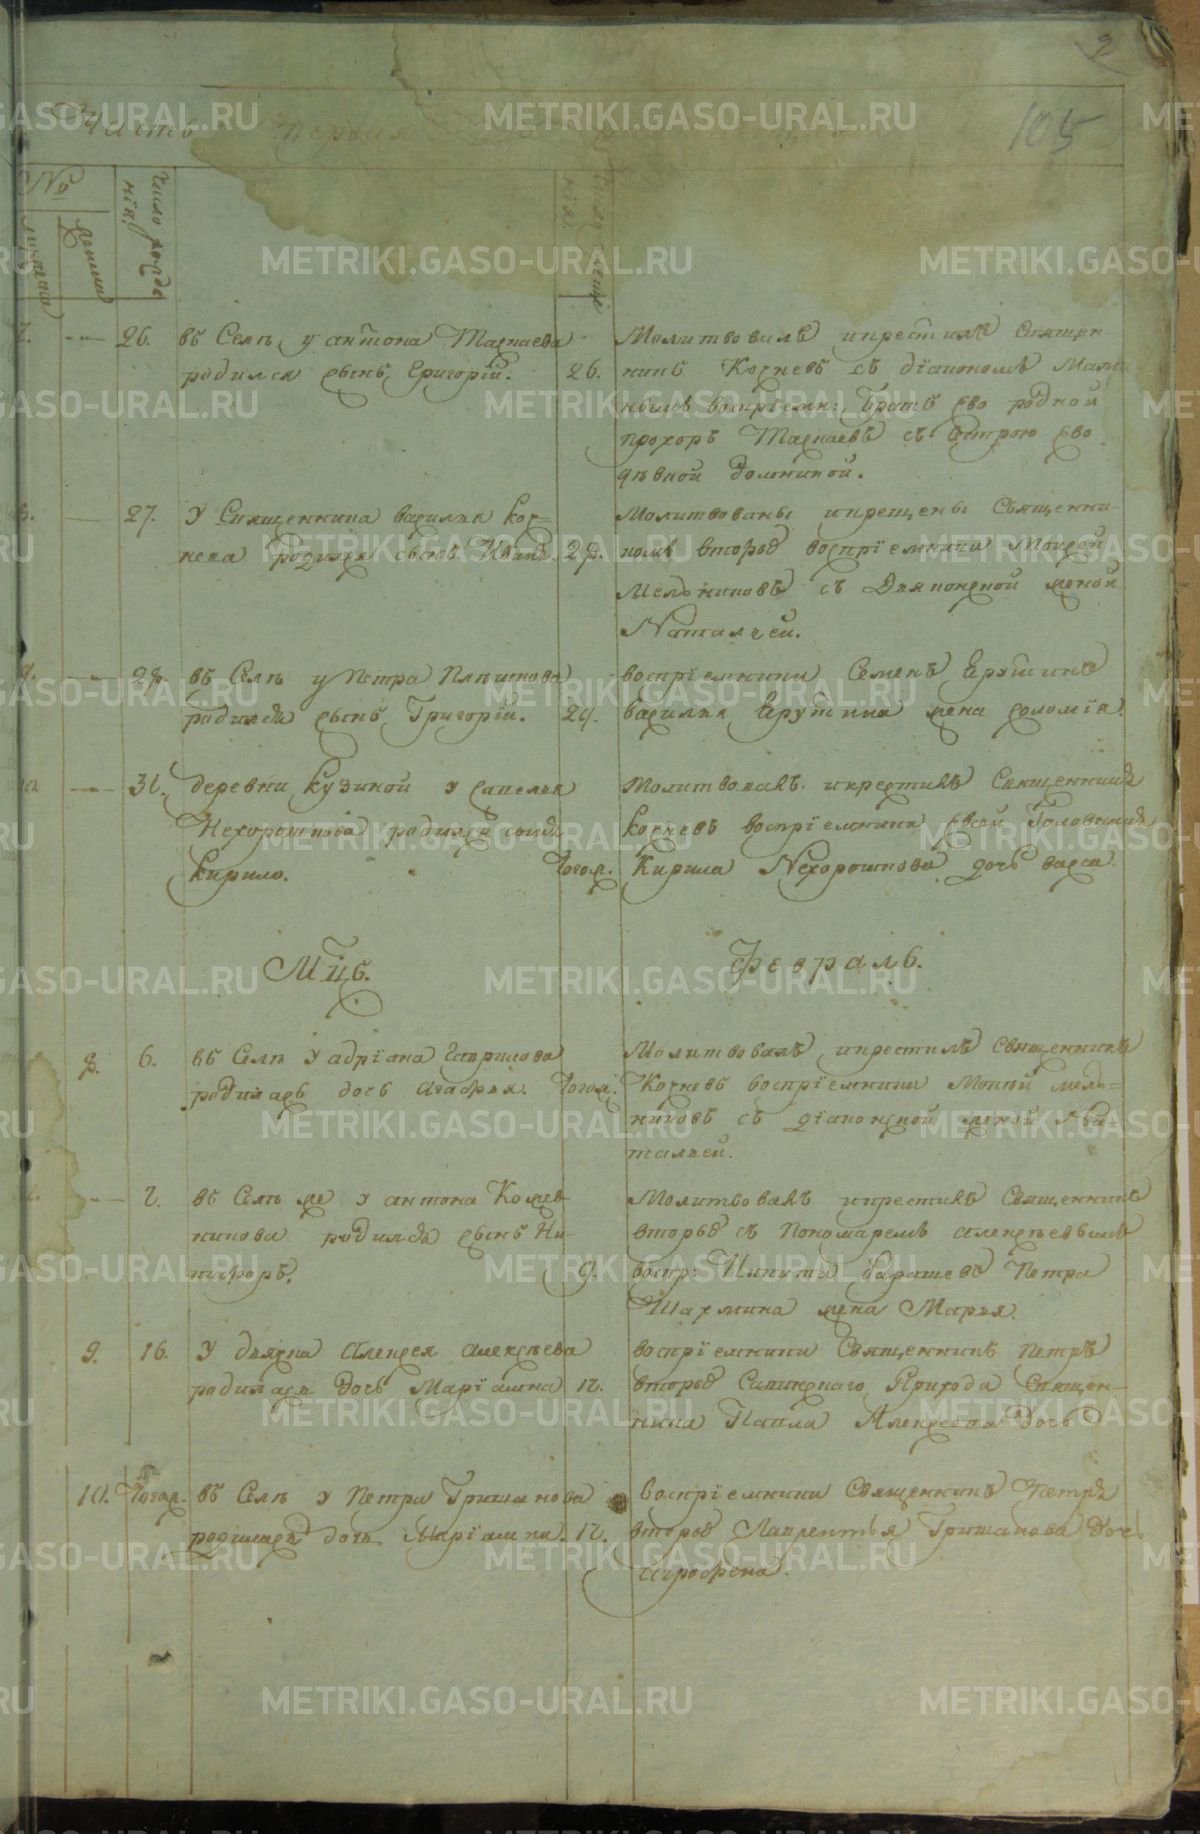 2
105
Часть первая
№
Число рожде
нія.
мужеска
женска
7. 26. въ Селѣ у антона Таскаева
родился сынъ Григорій. 26.
Молитвовалъ икрестилъ Священ
никъ Корчевъ съ діакономъ
воспріемн: братъ Ево родной
прохоръ Таскаевъ съ сестрою Ево
дѣвкой Домникой.
8. 27. У Священника василья Кор=
чева родился сынъ 28.
Молитвованы икрещены Священни-
комъ второв воспріемники Моисей
Мельниковъ съ Дьяконской женой
Натальей.
9. 28. въ Селѣ у Петра Плѣшкова
родился сынъ Григорій. 29.
воспріемники Семенъ Ярутинъ
василья Ярутина жена соломія.
10. 31. деревни Кузиной у савелья
Нехорошкова родился сынъ
Кирило. Тогож.
Молитвовалъ икрестилъ Священникъ
Корчевъ воспріемники Евсей Головинъ
Кирила Нехорошкова дочь васса.
Мцъ. Февраль.
8. 6. въ Селѣ у адріана Гаврилова
родилась дочь Агафья. Тогож.
Молитвовалъ икрестилъ священникъ
Корчевъ воспріемники Мокѣй мель=
никовъ съ діаконской женой На-
тальей.
7. въ Селѣ же у антона Кожев-
никова родился сынъ Ни-
кифоръ. 9.
Молитвовалъ икрестилъ Священникъ
второв съ Пономаремъ алексѣевымъ
воспр: Никита барашевъ Петра
Шахмина жена Марья.
9. 16. У дьячка Алексея алексѣева
родилась дочь Маріамна 17.
воспріемники Священникъ Петръ
второв Прихода Священ-
ника Павла Алексеева дочь
10. Тогож. въ Селѣ у Петра Гришанова
родилась дочь Маріамна. 17.
воспріемники Священникъ Петръ
второв Лаврентья Гришанова дочь
Агрофена.
METRIKI.GASO-URAL.RU